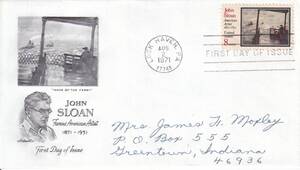 "WAKE OF THE FERRY"
JOHN
SLOAN
Famous American Artist
1871-1951
First Day of Issue
LOCK HAVEN, PA.
AUG
2
1971
17745
John
Sloan
American
Artist
8
FIRST DAY OF ISSUE
Mrs James F. Mopley
P.O. Box 555
Greentown, Indiana
46936